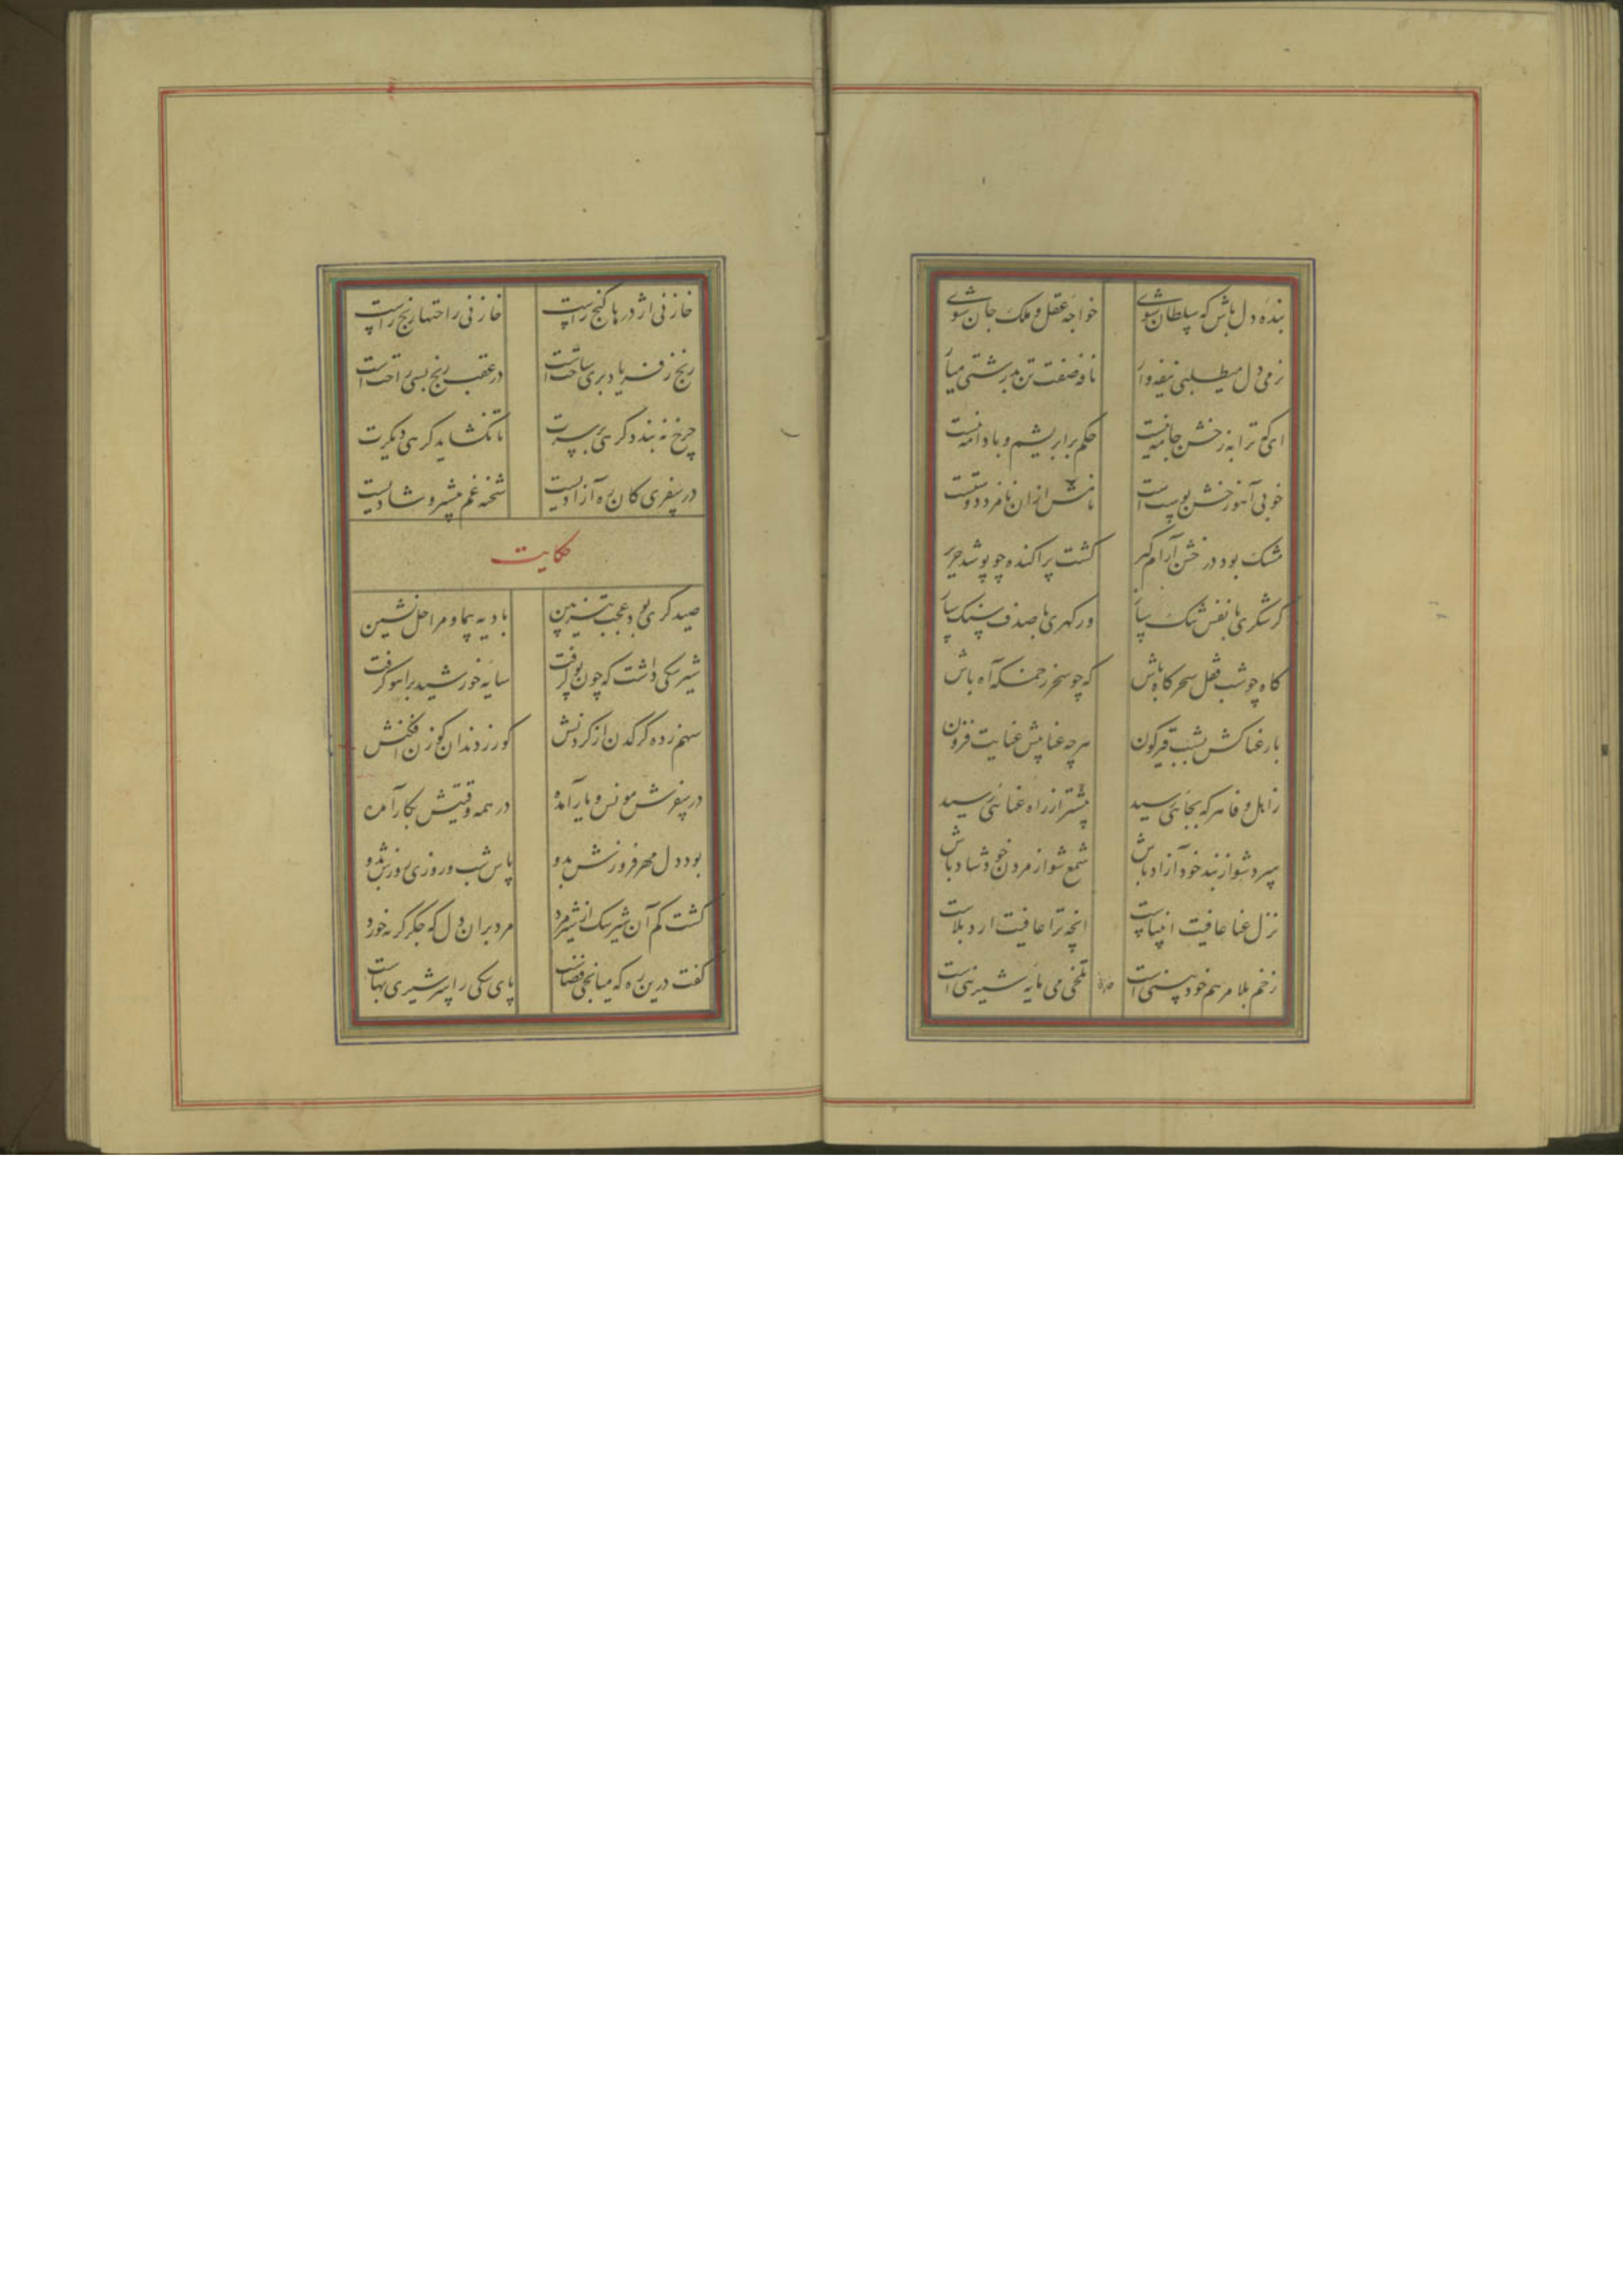 بنده دل باش که سلطان شوی خواجه عقل و ملک جان شوی
نرمی دل میطلبی نیفه وار نافه صفت تن بدرشتی سپار
ای که ترا به ز خشن جامه نیست حکم بر ابریشم و بادامه نیست
خوبی آهو ز خشن پوستست نامش از ان نامزد دوستست
مشک بود در خشن آرام گیر گشت پراکنده چو پوشد حریر
گر شکری با نفس تنگ بساز ور گهری با صدف سنگ بساز
گاه چو شب قفل سحرگاه باش گه چو سحر زخمگه آه باش
بار عنا کش بشب قیرگون هر چه عنا بیش عنایت فزون
ز اهل وفا هر که بجائی رسید پیشتر از راه عنائی رسید
سرد شو از بند خود آزاد باش شمع شو از مردن خود شاد باش
نزل عنا عافیت انبیاست انچه ترا عافیت ارد بلاست
زخم بلا مرهم خود بینی است تلخی می مایه شیرینی است
خازنی اژدرها گنج راست خازنی راحتها رنج راست
رنج ز فریاد بری ساحتست در عقب رنج بسی راحتست
چرخ نه بندد گرهی بر سرت تا نگشاید گرهی دیگرت
در سفری کان ره آزادیست شحنه غم پیشرو شادیست
حکایت
صیدگری بود عجب تیزبین بادیه پیما و مراحل نشین
شیر سگی داشت که چون پو گرفت سایه خورشید بر اهو گرفت
سهم زده کرگدن از گردنش گور ز دندان گوزن افکنش
در سفرش مونس و یار آمده در همه وقتیش بکار آمده
بود دل مهر فروزش بدو پاس شب و روزی روزش بدو
گشت کم آن شیر سگ از شیرمرد مرد بران دل که جگر گربه خورد
گفت درین ره که میانجی قضاست پای سگی را سر شیری بهاست